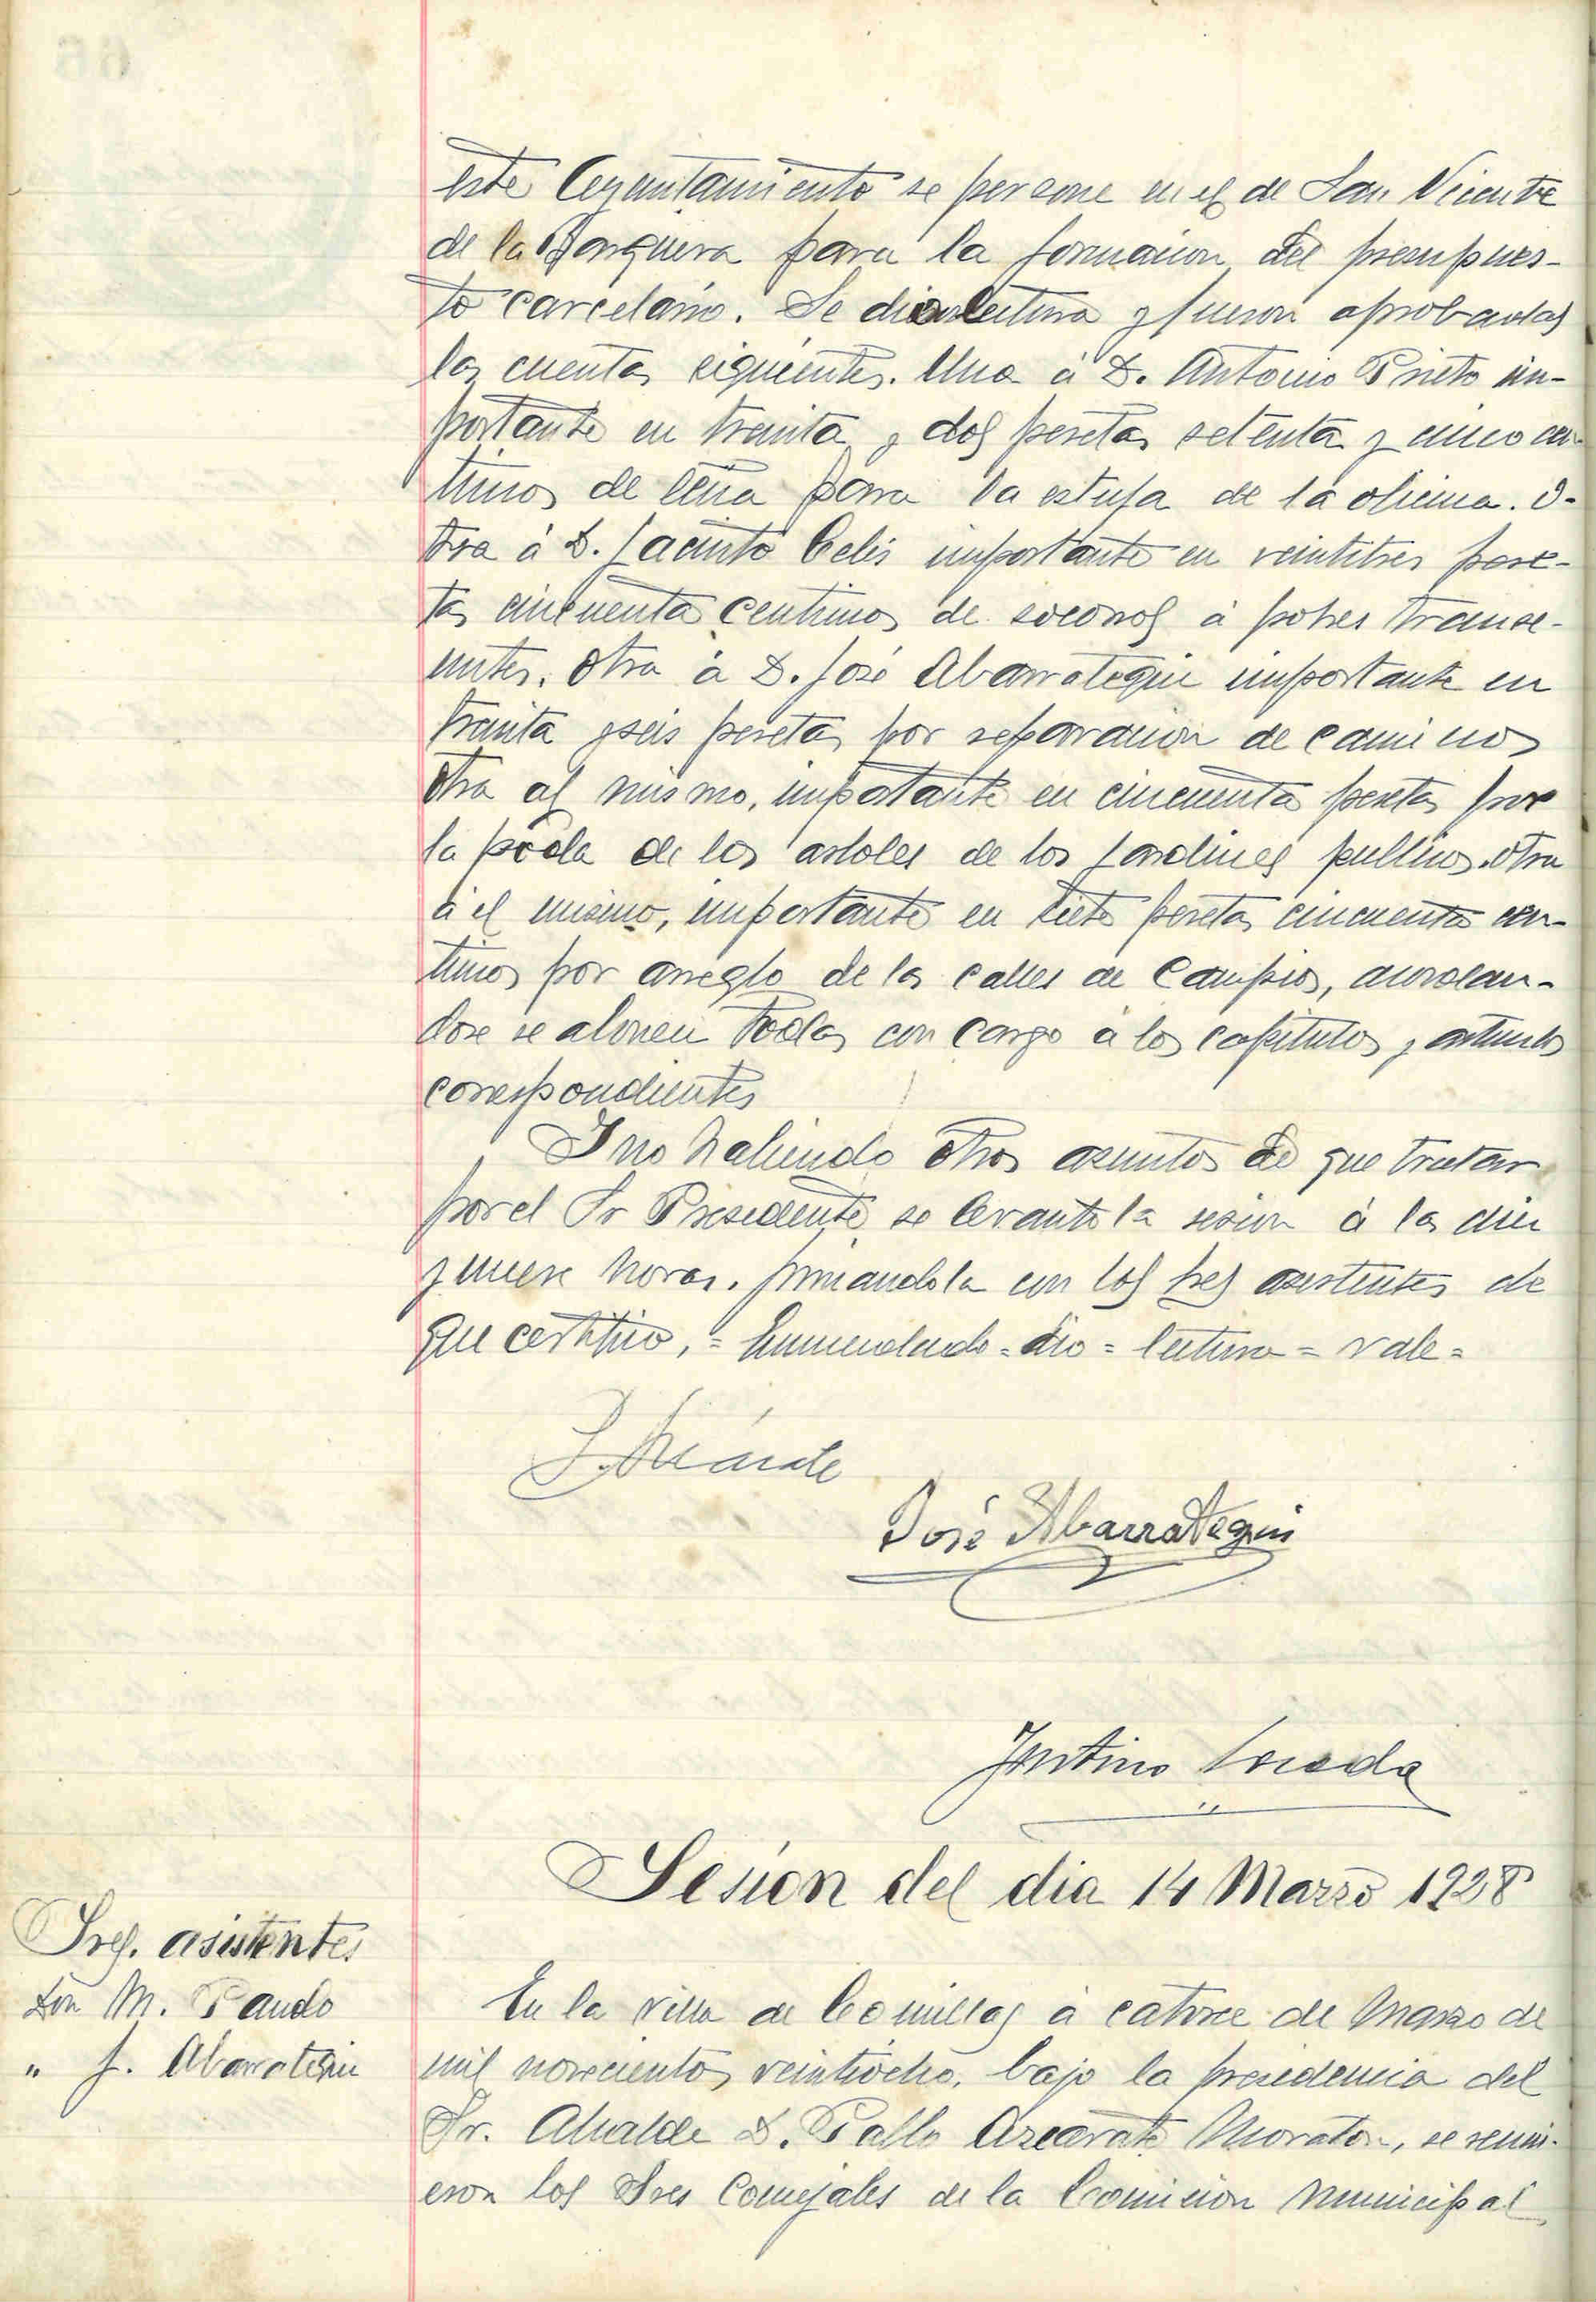 este Ayuntamiento se persone en el de San Vicente
de la Barquera para la formacion del presupues-
to carcelario. Se dio lectura y fueron aprobadas
las cuentas siguientes. Una á D. Antonio Prieto im-
portante en treinta y dos pesetas setenta y cinco cen-
timos de leña para la estufa de la oficina. O-
tra á D. Jacinto Celis importante en veintitres pese-
tas cincuenta centimos de socorros á pobres transe-
untes. Otra á D. José Abarrategui importante en
treinta y seis pesetas por reparacion de caminos
otra al mismo, importante en cincuenta pesetas por
la poda de los arboles de los Jardines publicos. otra
á el mismo, importante en siete pesetas cincuenta cen-
timos por arreglo de las calles de Campios, acordan-
dose se abonen todas con cargo á los capitulos y articulos
correspondientes
Y no habiendo otros asuntos de que tratar
por el Sr Presidente se levanto la sesion á las diez
y nueve horas. firmandola con los Sres asistentes de
que certifico, = Enmendado = dio = lectura = vale =
José Abarrategui
Justino
Sesion del dia 14 Marzo 1928
Sres. asistentes
Don M. Pando
" J. Abarrategui
En la villa de Comillas á catorce de Marzo de
mil novecientos veintiocho. bajo la presidencia del
Sr. Alcalde D. Pablo Azcarate Moraton, se reuni-
eron los Sres Concejales de la Comision Municipal